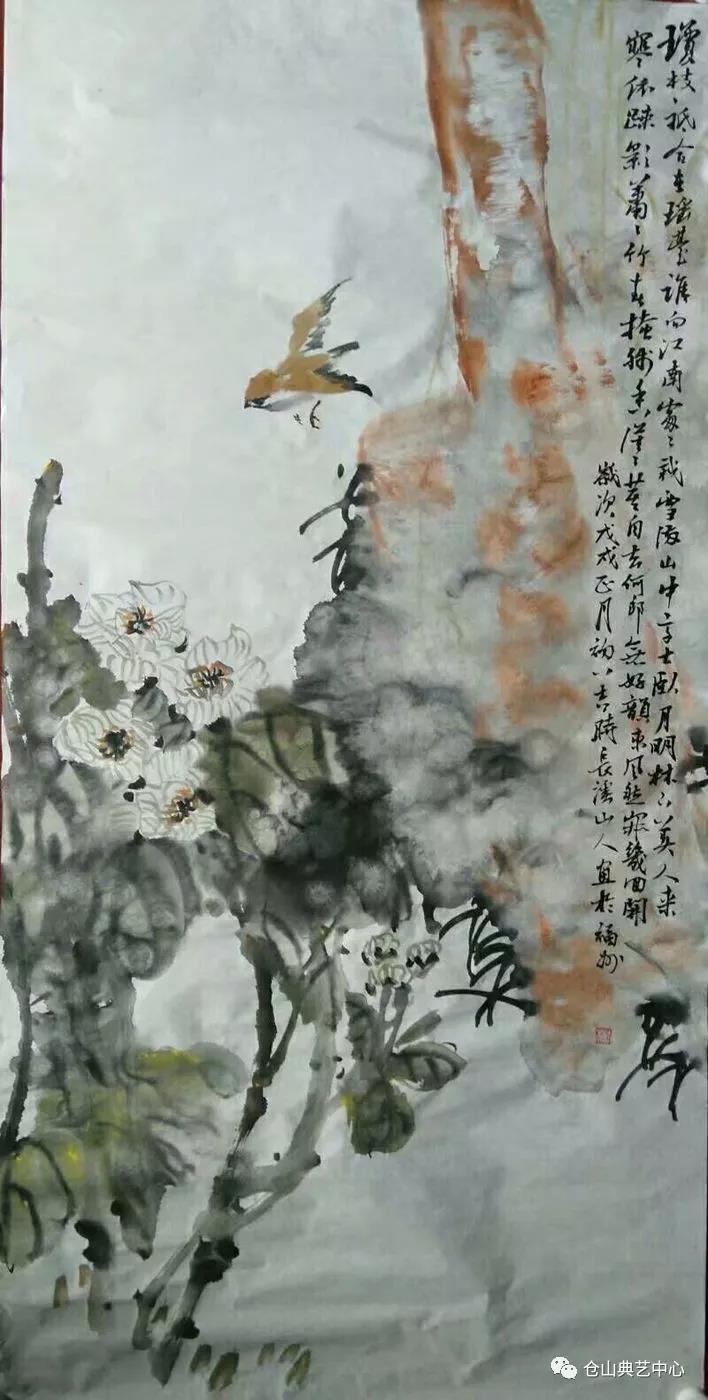 瓊枝祗合在瑤臺誰向江南處々栽雪滿山中高士臥月明林下美人来
寒依踈影蕭々竹春掩殘香漠々苔自去何郎無好東風愁寂幾回開
歲次戊戌正月初八吉時長溪山人画於福州
仓山典艺中心